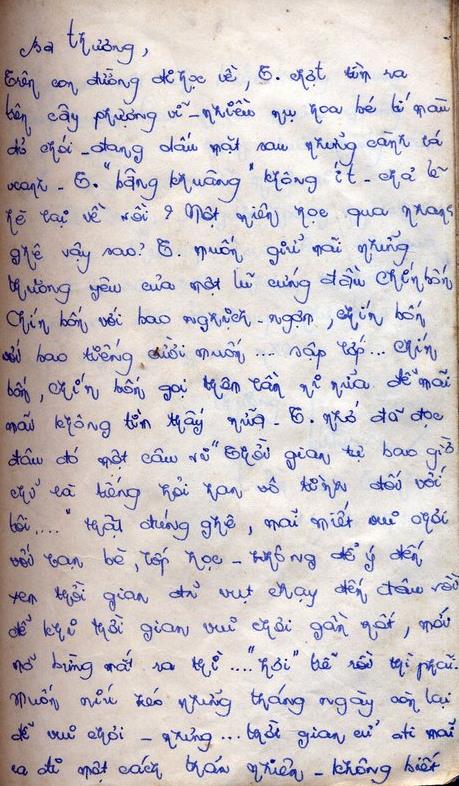 Sa thương,
Trên con đường đi học về, T. chợt tìm ra
trên cây phượng vĩ - nhiều nụ hoa bé tí màu
đỏ chói - đang dấu mặt sau những cành lá
xanh - T. "bâng khuâng" không ít - chả lẽ
hè lại về rồi? Một niên học qua nhanh
ghê vậy sao? T. muốn giữ mãi những
thương yêu của một lũ cứng đầu Chín bốn
Chín bốn với bao nghịch - ngợm, chín bốn
với bao tiếng cười muốn .... sập lớp ... Chín
bốn, chín bốn gọi thêm lần nữa để mãi
mãi không tìm thấy nữa - T. nhớ đã đọc
đâu đó một câu "Thời gian tự bao giờ
chỉ là tiếng hỏi han vô tình đối với
tôi ...." thật đúng ghê, mải miết vui chơi
với bạn bè, lớp học - không để ý đến
xem thời gian đã vụt chạy đến đâu rồi
để khi thời gian vui chơi gần hết, mới
mở bừng mắt ra thì .... "hơi" trễ rồi thì phải -
Muốn níu kéo những tháng ngày còn lại
để vui chơi - nhưng ... thời gian cứ đi mãi
ra đi một cách thản nhiên - không biết